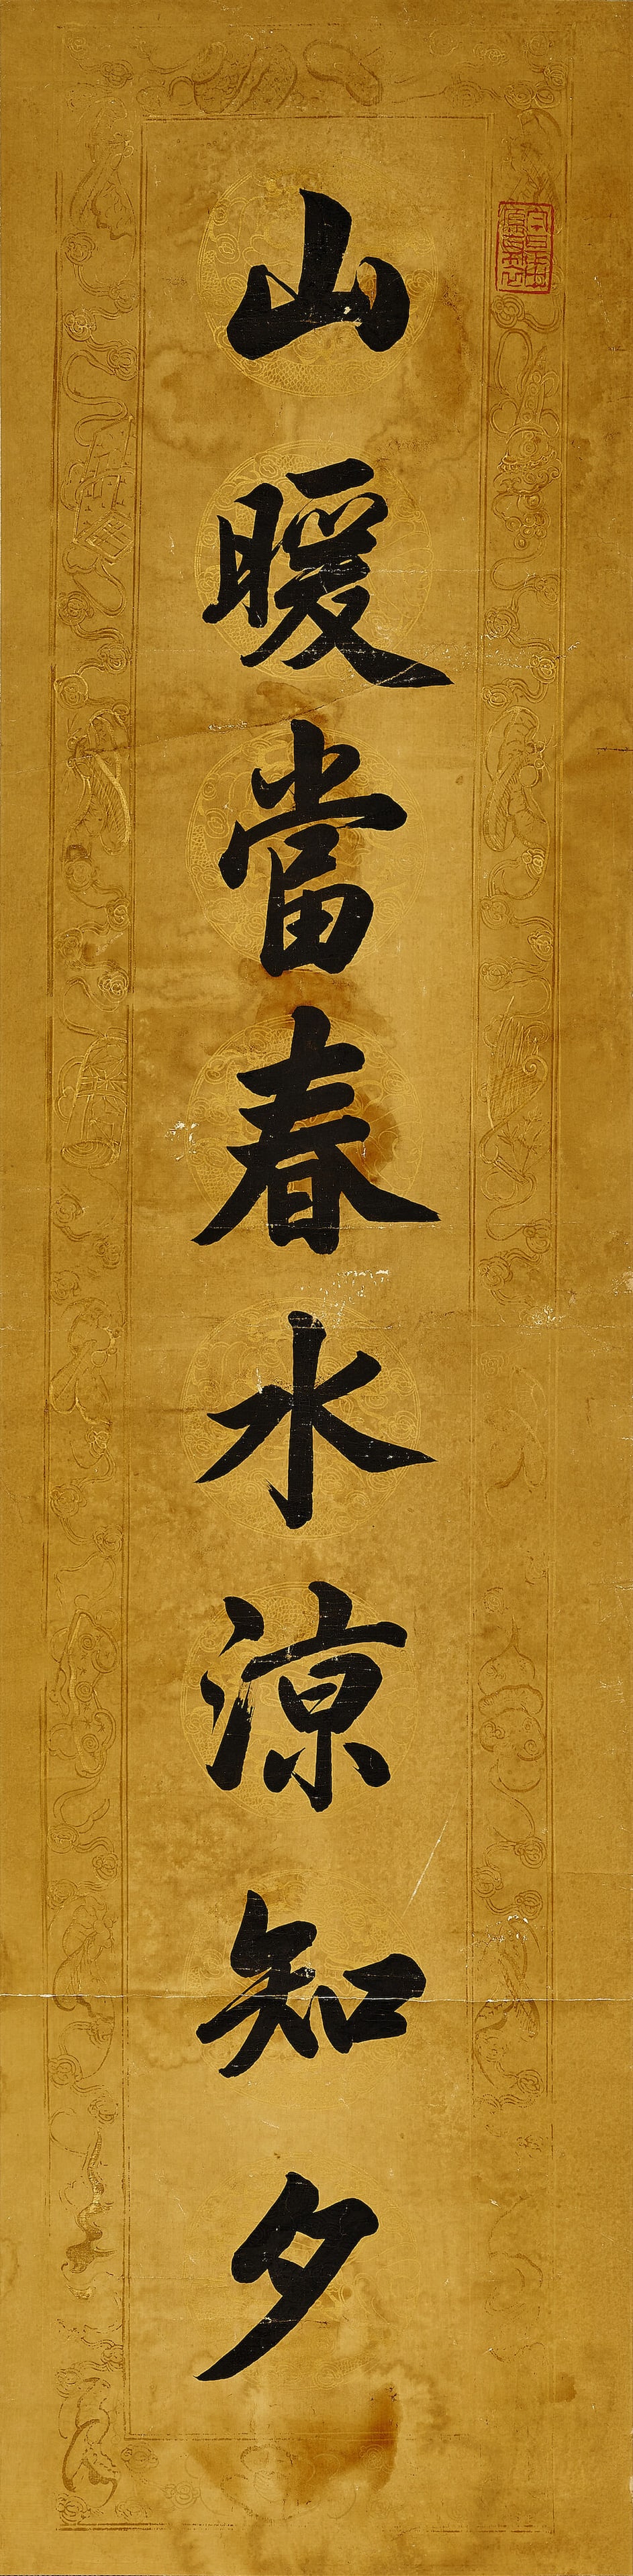 山暖當春水涼知夕